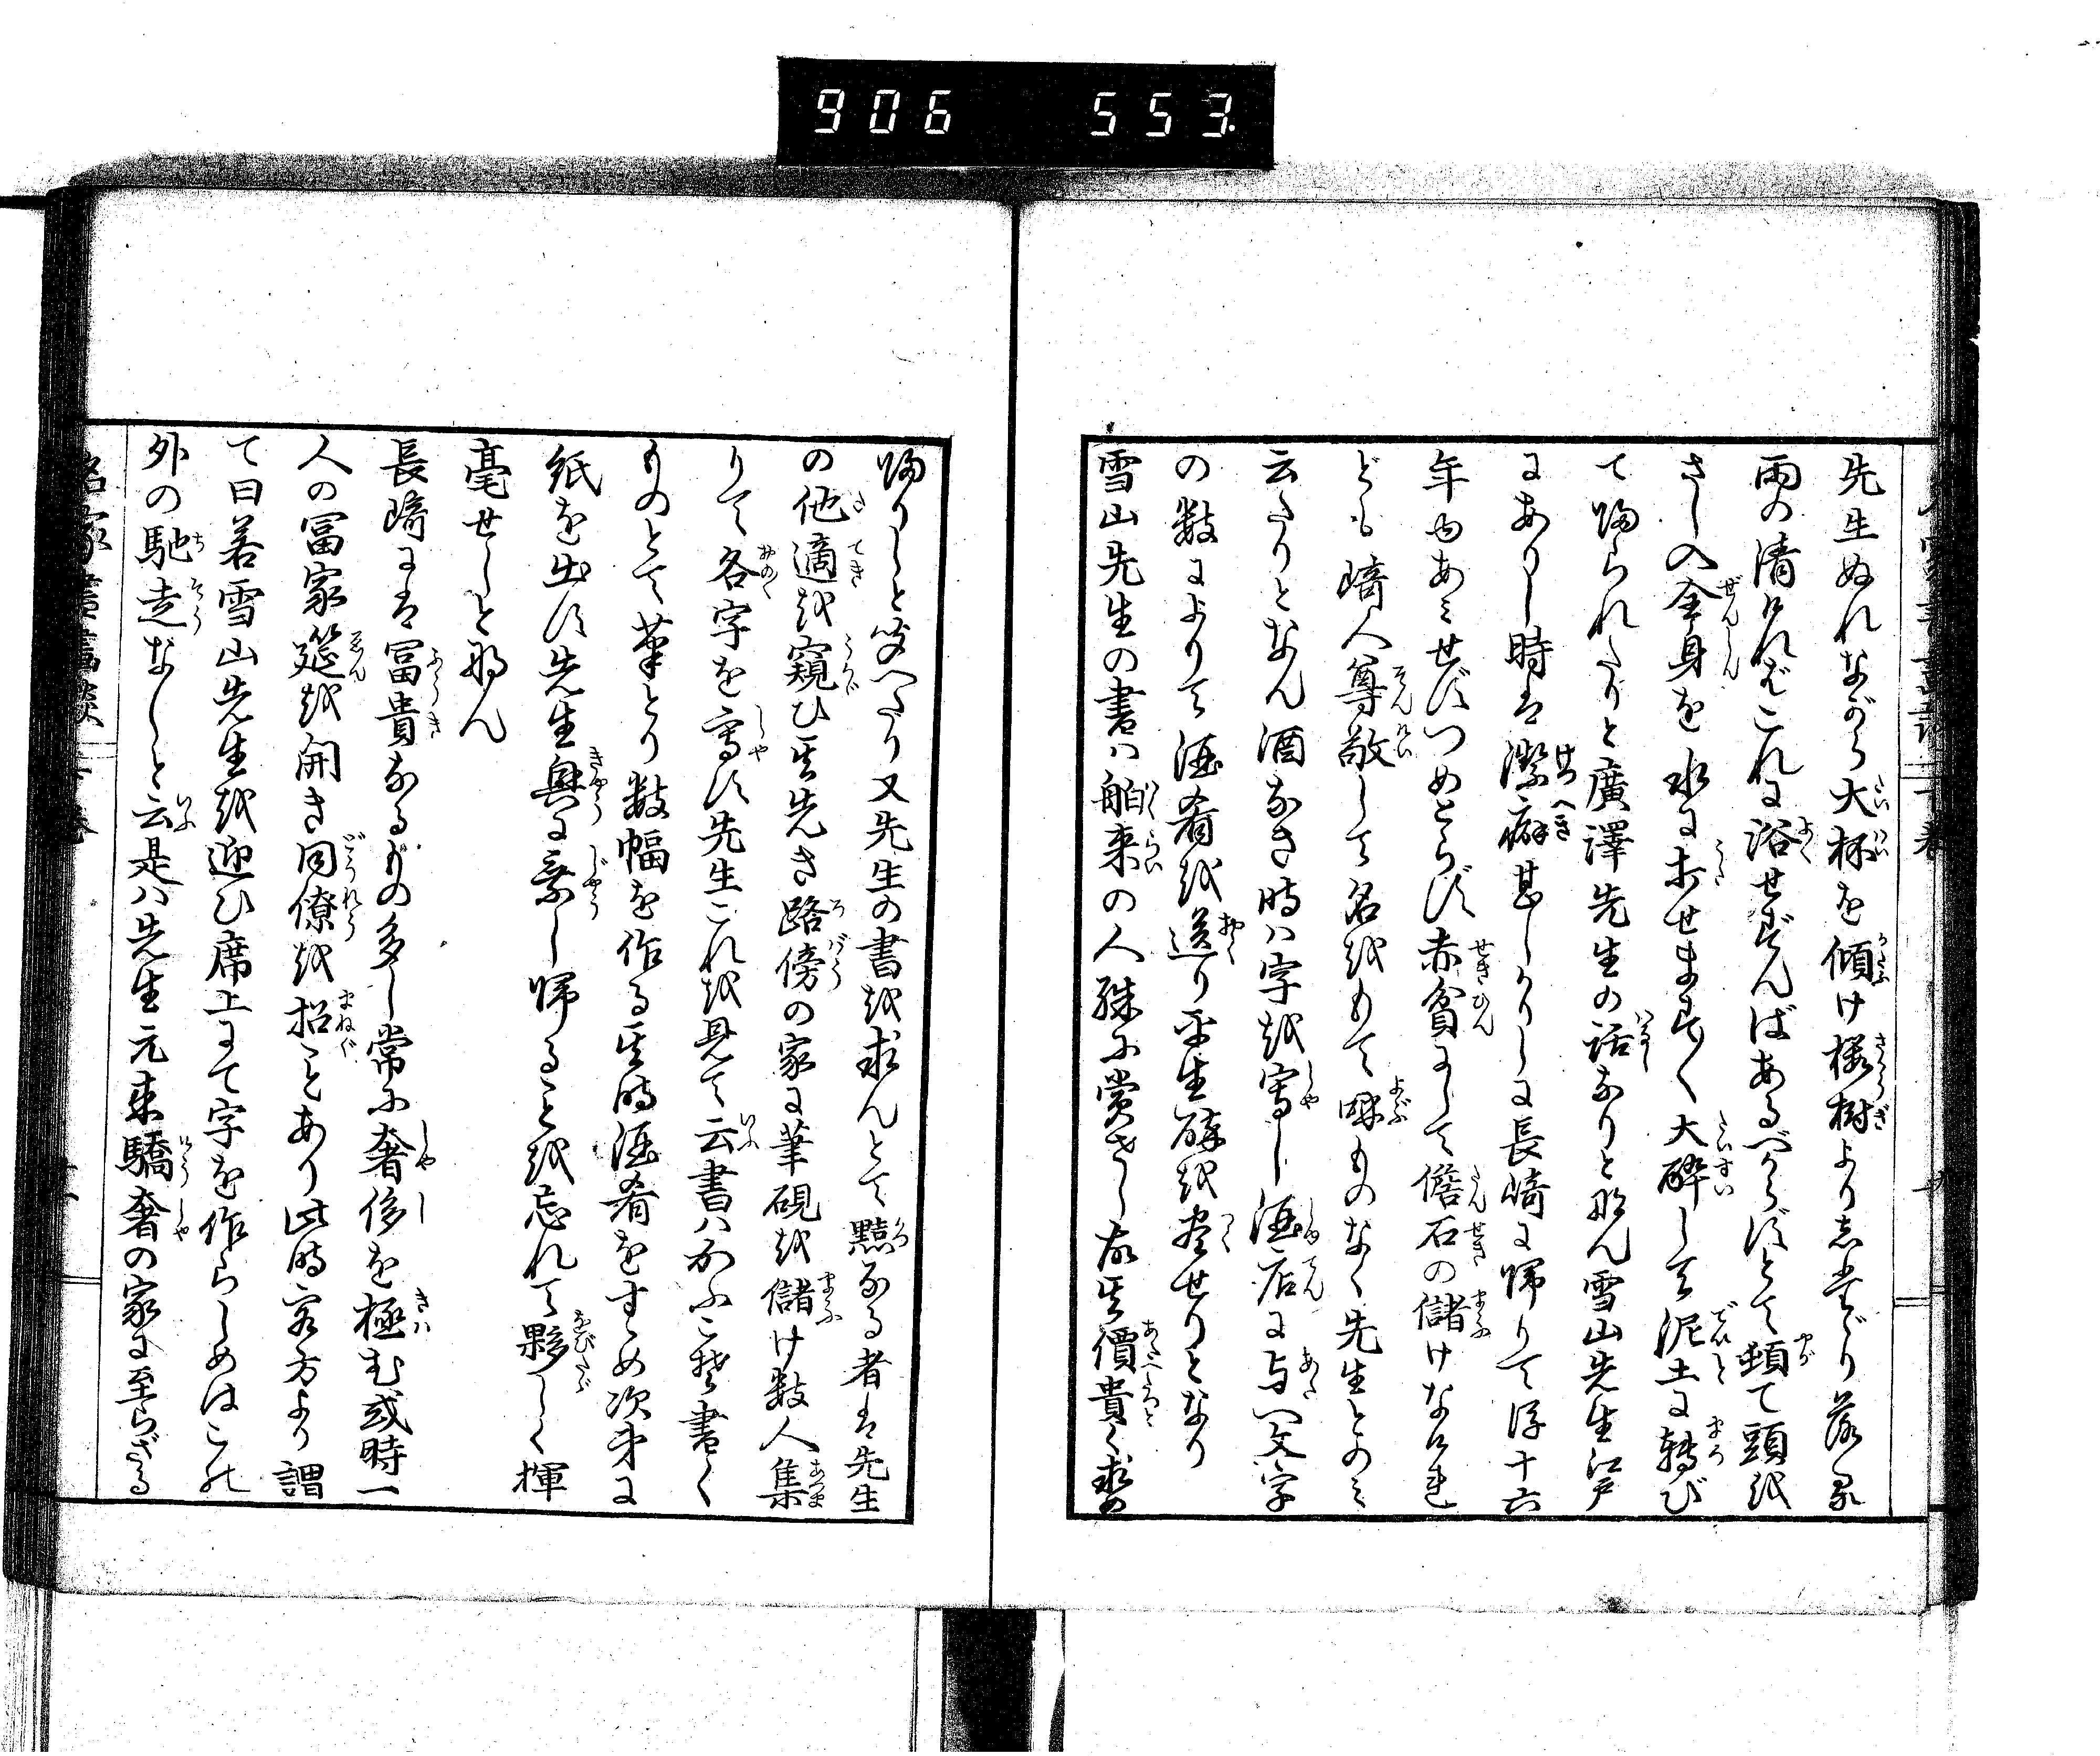 906 553.
先生ぬれながら大杯を傾け桜樹よりしたゞり落る
雨の清ければこれに浴せずんばあるべからずとて頓て頭を
さし入全身を水に打せまもなく大酔して泥土に転び
て帰られたりと廣澤先生の話なりとなん雪山先生江戸
にありし時は潔癖甚しかりしに長崎に帰りて後十六
年ゆあみせずつめとらず赤貧にして儋石の儲けなけれ
ども崎人尊敬して名をもて呼ものなく先生とのミ
云たりとなん酒なき時ハ字を寫し酒店に与へ文字
の数によりて酒肴を送り平生酔を尽せりとなり
雪山先生の書ハ舶来の人殊に賞せし故其價貴く求め
帰りしと聞へたり又先生の書を求んとて黠なる者は先生
の他適を窺ひ其先き路傍の家に筆硯を儲け数人集
りて各字を寫す先生これを見て云書ハかふこそ書く
ものとて筆とり数幅を作る其時酒肴をすゝめ次第に
紙を出す先生興に乗し帰ることを忘れて夥しく揮
毫せしとなん
長崎には冨貴なるもの多し常に奢侈を極む或時一
人の冨家筵を開き同僚を招ことあり此時客方より謂
て曰若雪山先生を迎ひ席上にて字を作らしめはこの
外の馳走なしと云是ハ先生元来驕奢の家に至らざる